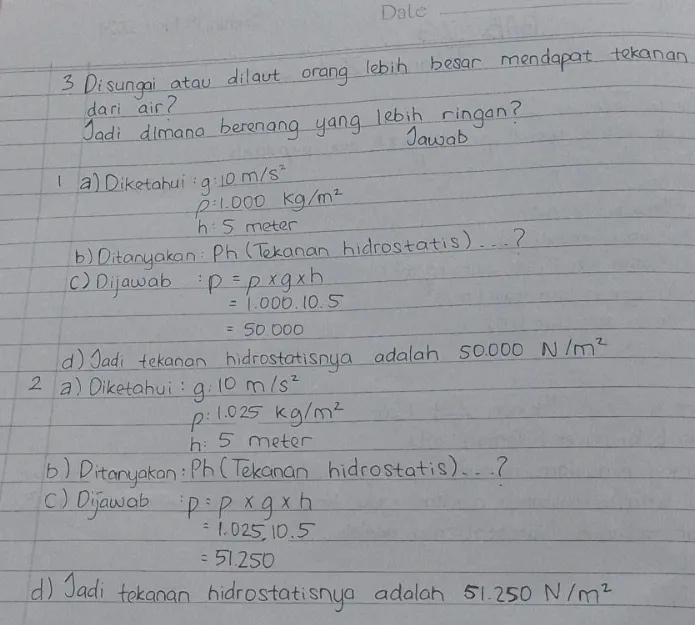 Date
3 Disungai atau dilaut orang lebih besar mendapat tekanan
dari air?
Jadi dimana berenang yang lebih ringan?
Jawab
1 a) Diketahui : g: 10 m/s²
ρ: 1.000 kg/m²
h: 5 meter
b) Ditanyakan : Ph (Tekanan hidrostatis) ...?
c) Dijawab : p = ρ x g x h
= 1.000.10.5
= 50.000
d) Jadi tekanan hidrostatisnya adalah 50.000 N/m²
2 a) Diketahui : g: 10 m/s²
ρ: 1.025 kg/m²
h: 5 meter
b) Ditanyakan : Ph (Tekanan hidrostatis)...?
c) Dijawab : p = ρ x g x h
= 1.025.10.5
= 51.250
d) Jadi tekanan hidrostatisnya adalah 51.250 N/m²